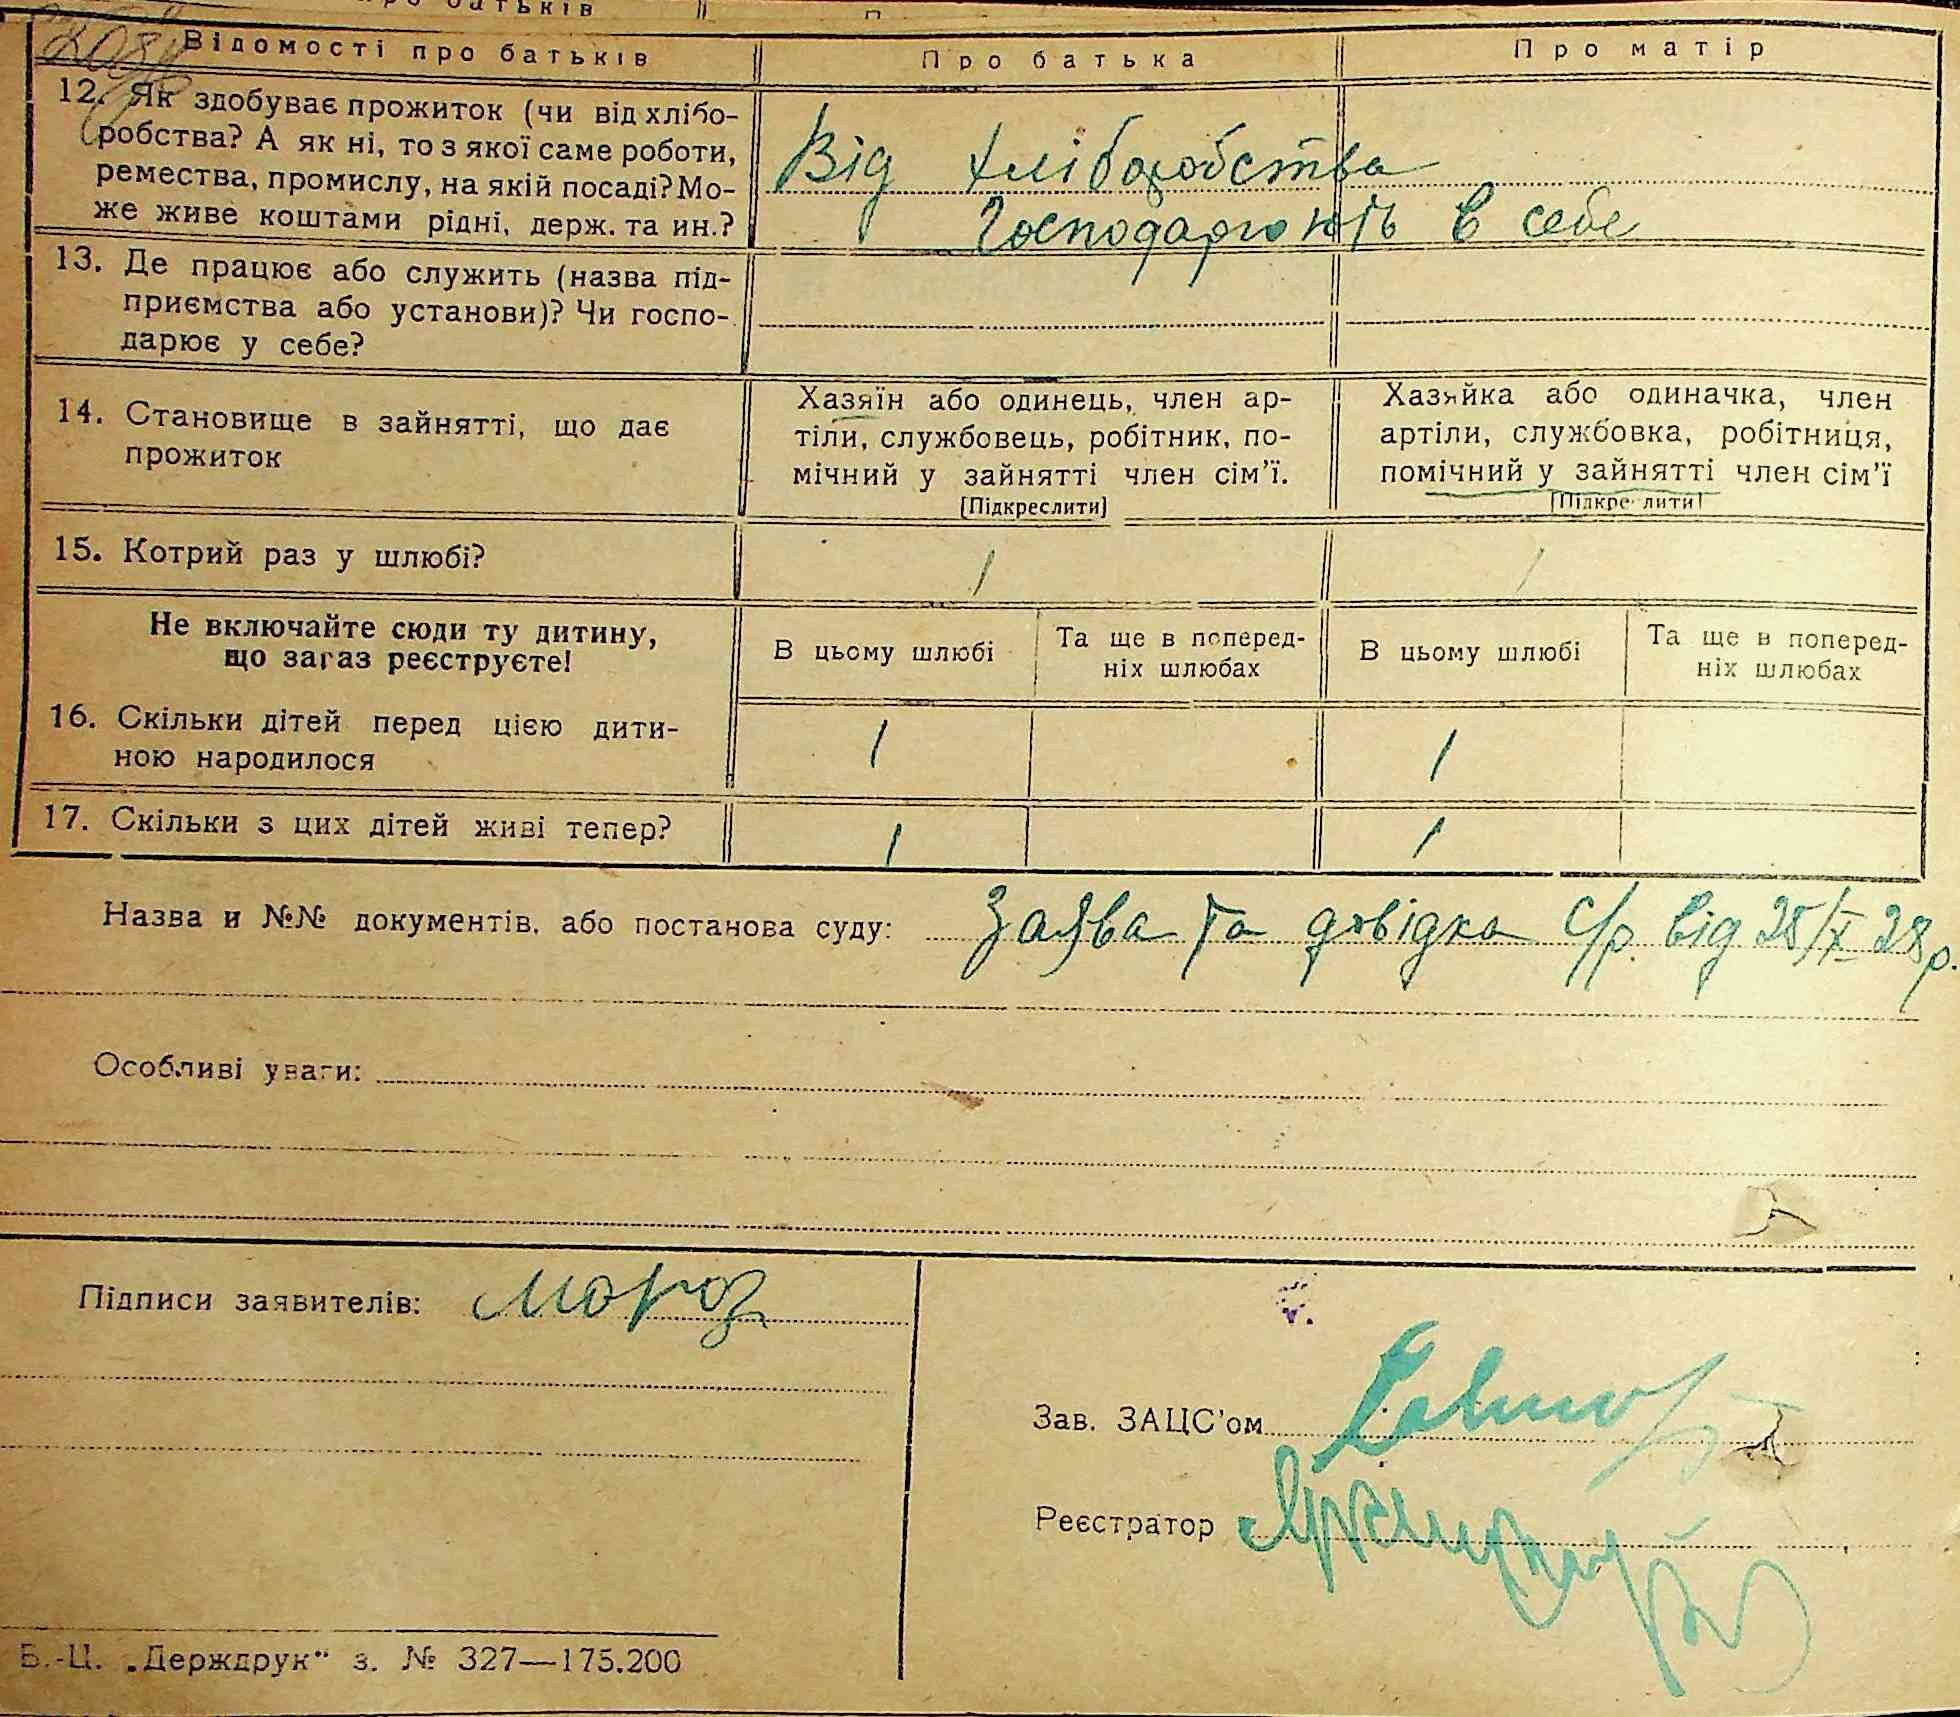 Відомості про батьків
Про батька
Про матір
12. Як здобуває прожиток (чи від хлібо-
робства? А як ні, то з якої саме роботи,
ремества, промислу, на якій посаді? Мо-
же живе коштами рідні, держ. та ин.?
Від хліборобства
Господарюють в себе
13. Де працює або служить (назва під-
приємства або установи)? Чи госпо-
дарює у себе?
14. Становище в зайнятті, що дає
прожиток
Хазяїн або одинець, член ар-
тіли, службовець, робітник, по-
мічний у зайнятті член сім'ї.
[Підкреслити]
Хазяйка або одиначка, член
артіли, службовка, робітниця,
помічний у зайнятті член сім'ї
[Підкреслити]
15. Котрий раз у шлюбі?
1
1
Не включайте сюди ту дитину,
що загаз реєструєте!
В цьому шлюбі
Та ще в поперед-
ніх шлюбах
В цьому шлюбі
Та ще в поперед-
ніх шлюбах
16. Скільки дітей перед цією дити-
ною народилося
1
1
17. Скільки з цих дітей живі тепер?
1
1
Назва и №№ документів, або постанова суду: Заява та довідка с/р. від 25/X 28 р.
Особливі уваги:
Підписи заявителів: Мороз
Зав. ЗАЦС'ом
Реєстратор
Б.-Ц. „Держдрук" з. № 327—175.200